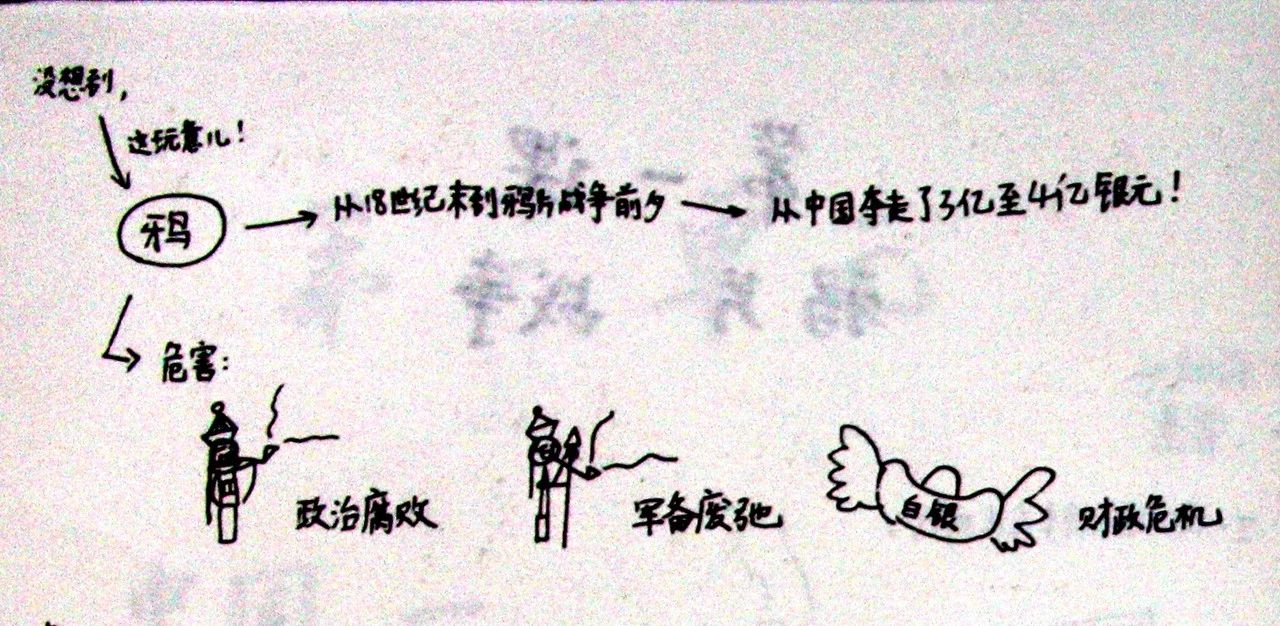 没想到，
这玩意儿！
鸦
从18世纪末到鸦片战争前夕
从中国夺走了3亿至4亿银元！
危害：
政治腐败
军备废弛
白银
财政危机